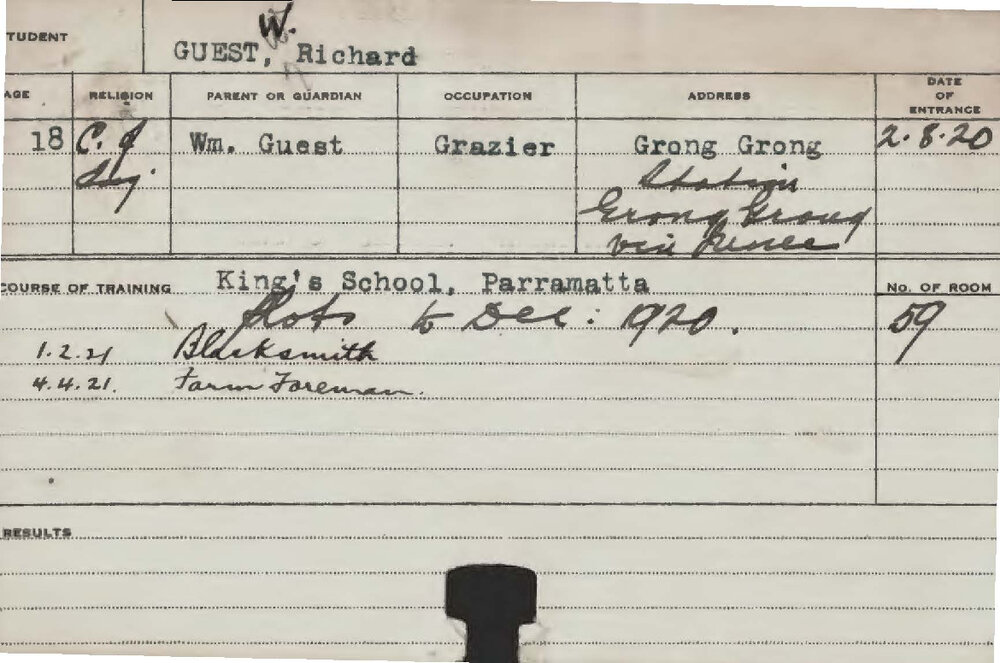 W.
TUDENT
GUEST, Richard
AGE RELIGION PARENT OR GUARDIAN OCCUPATION ADDRESS DATE OF ENTRANCE
18 C. of Wm. Guest Grazier Grong Grong 2.8.20
Eng. Station
Grong Grong
via
COURSE OF TRAINING King's School, Parramatta No. OF ROOM
to Dec: 1920. 59
1.2.21 Blacksmith
4.4.21. Farm Foreman.
RESULTS